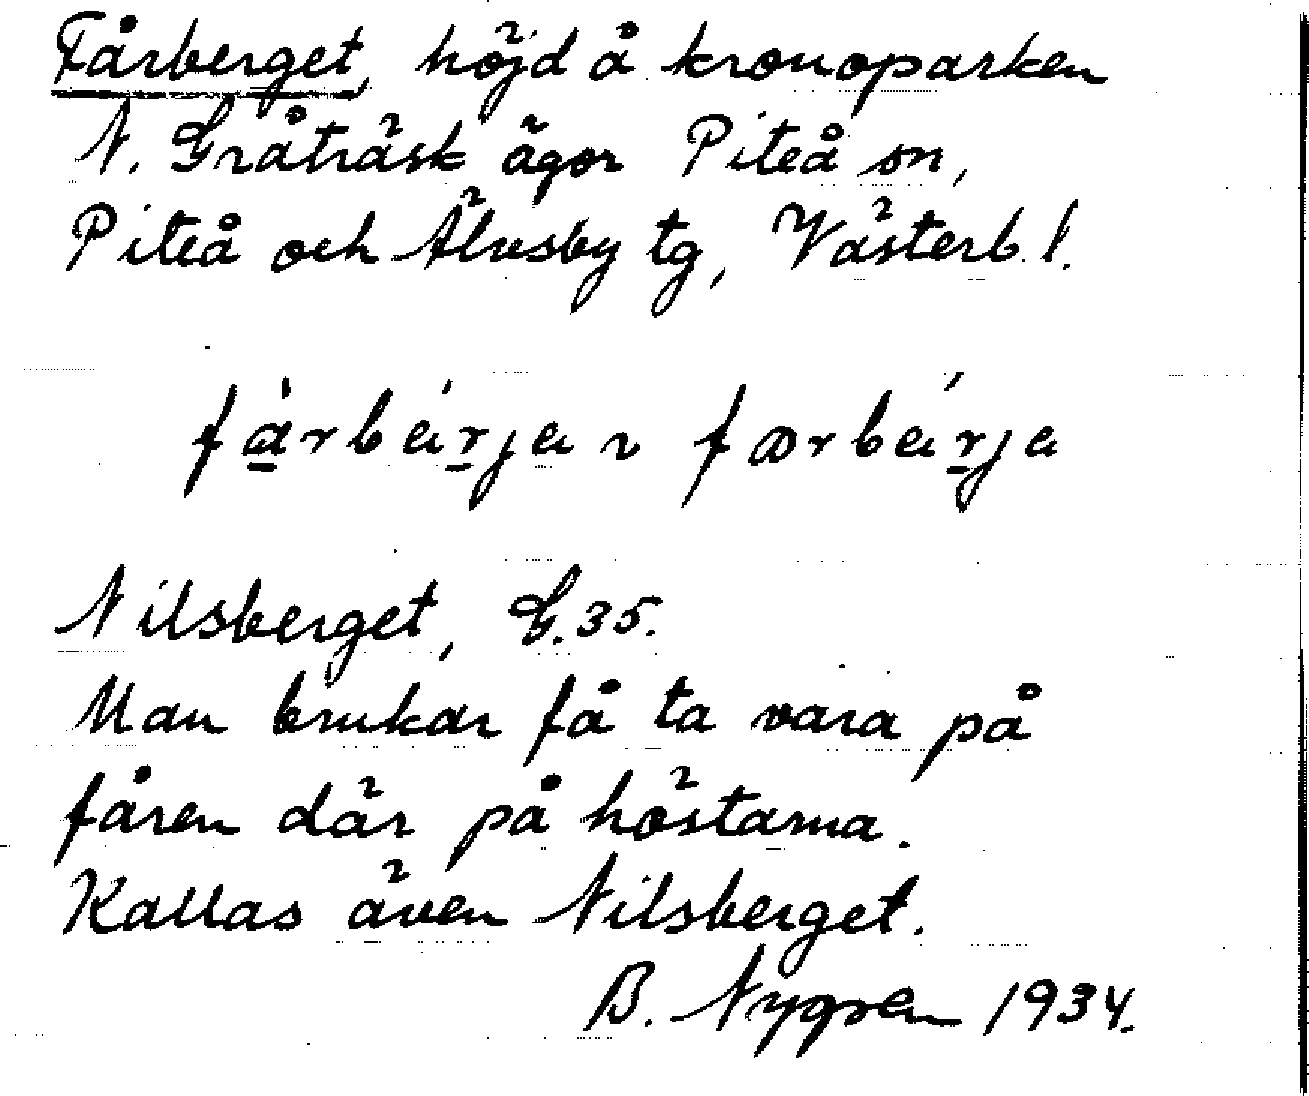 Fårberget, höjd å kronoparken
N. Gråträsk ägor Piteå sn,
Piteå och Älvsby tg, Västerb. l.
fàrbárja ~ færbárja
Nilsberget, G. 35.
Man brukar få ta vara på
fåren där på höstarna.
Kallas även Nilsberget.
B. Nygren 1934.